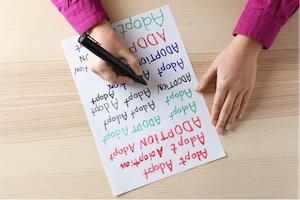 Adopt
ADOPT
Adoption
Adopt ADOPTION
Adopt Adopt
Adopt Adoption
Adopt Adopt
Adopt ADOPT Adopt
Adoption ADOPTION
ADOPTION Adopt
Adopt Adoption
Adopt Adopt